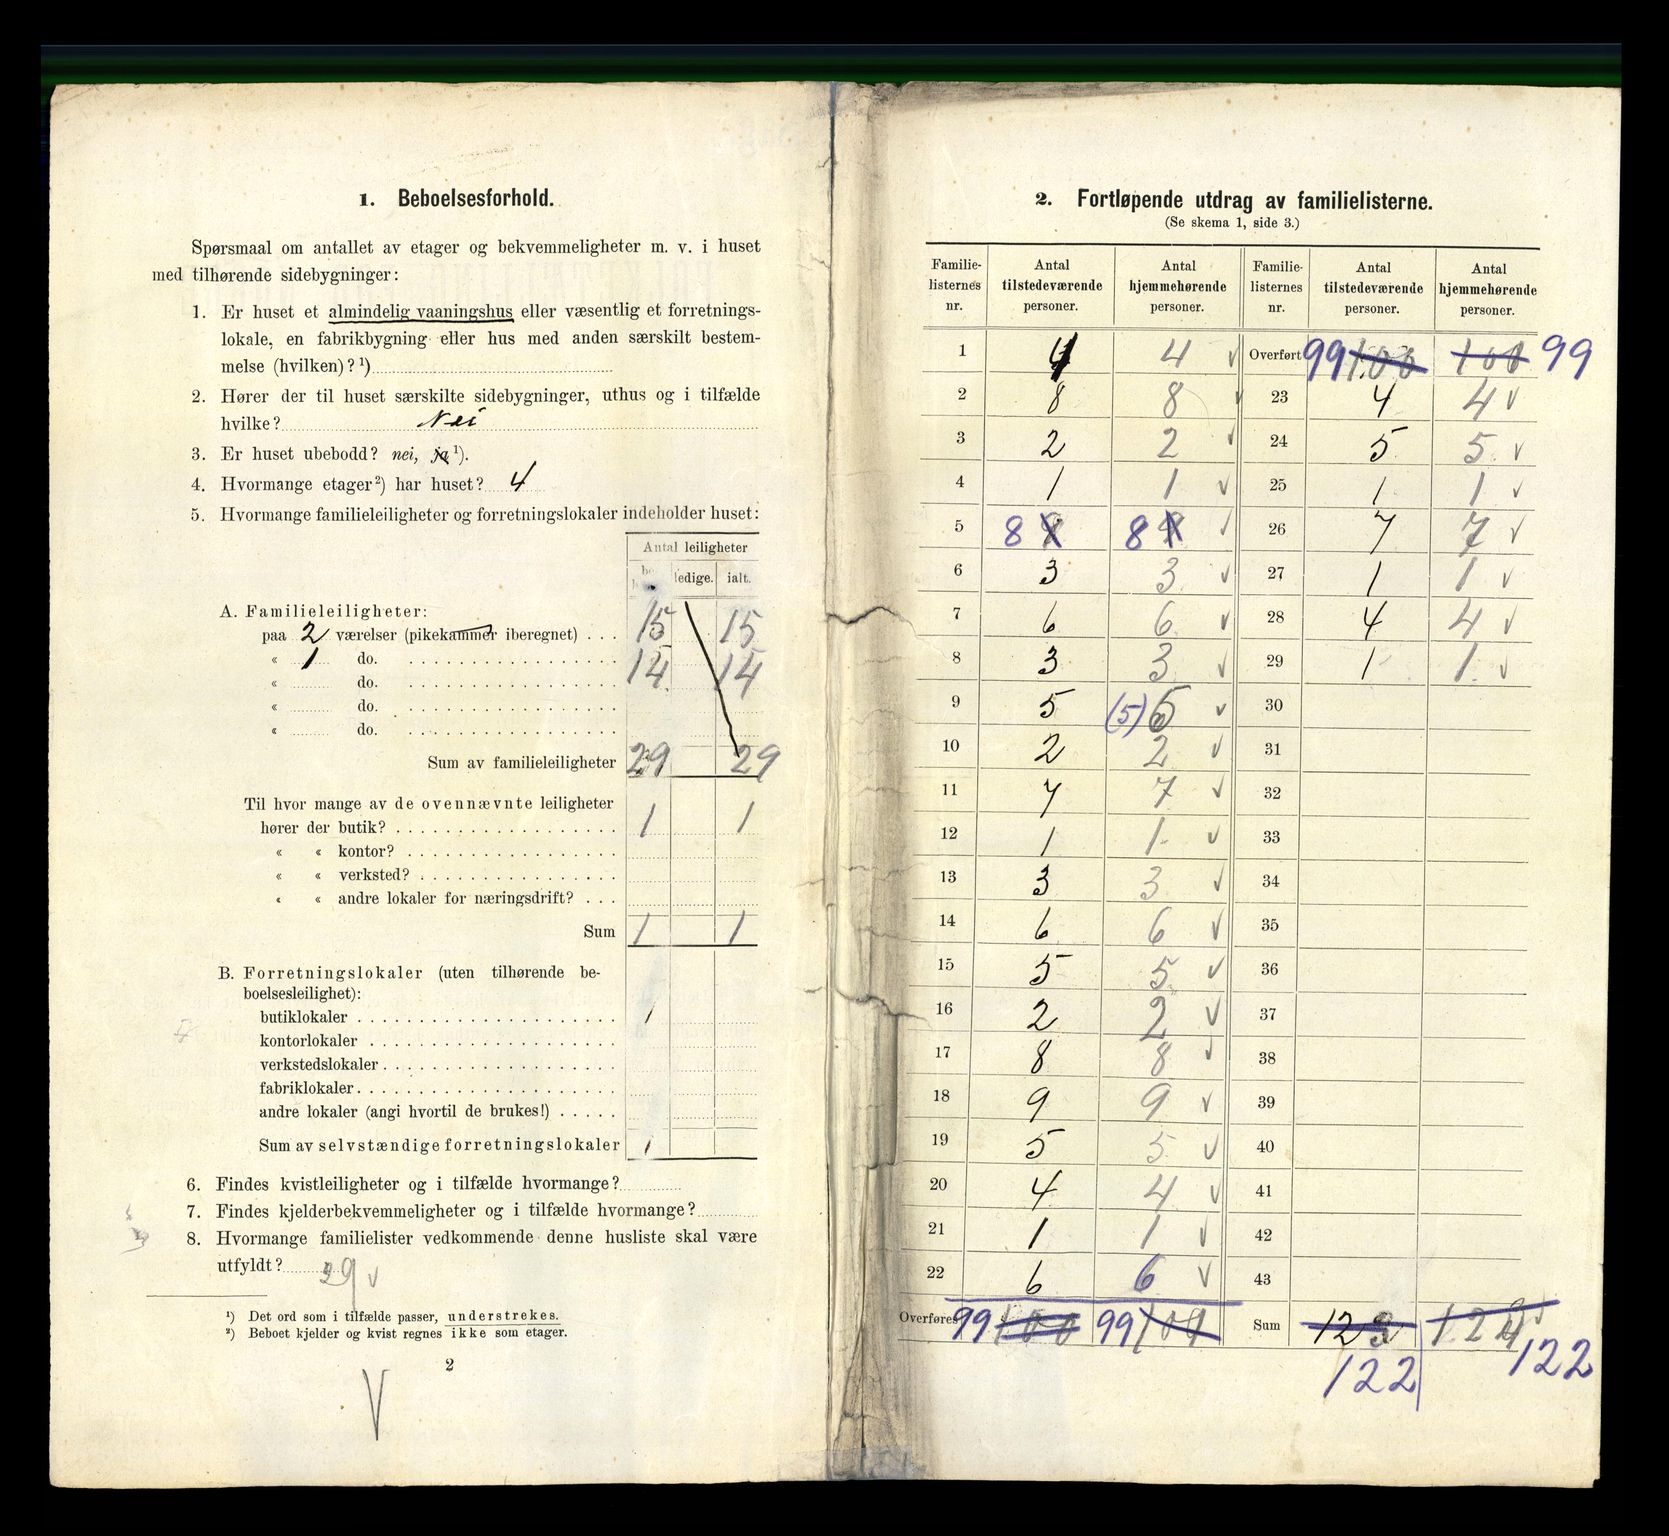 1. Beboelsesforhold.
Spørsmaal om antallet av etager og bekvemmeligheter m. v. i huset
med tilhørende sidebygninger:
1. Er huset et almindelig vaaningshus eller væsentlig et forretnings-
lokale, en fabrikbygning eller hus med anden særskilt bestem-
melse (hvilken)? ¹)
2. Hører der til huset særskilte sidebygninger, uthus og i tilfælde
hvilke? Nei
3. Er huset ubebodd? nei, ja ¹).
4. Hvormange etager ²) har huset? 4
5. Hvormange familieleiligheter og forretningslokaler indeholder huset:
Antal leiligheter
ledige. ialt.
A. Familieleiligheter:
paa 2 værelser (pikekammer iberegnet) . . . 15 15
« 1 do. 14 14
« do.
« do.
« do.
Sum av familieleiligheter 29 29
Til hvor mange av de ovennævnte leiligheter
hører der butik? 1 1
« « kontor?
« « verksted?
« « andre lokaler for næringsdrift? . . .
Sum 1 1
B. Forretningslokaler (uten tilhørende be-
boelsesleilighet):
butiklokaler 1
kontorlokaler
verkstedslokaler
fabriklokaler
andre lokaler (angi hvortil de brukes!)
Sum av selvstændige forretningslokaler 1
6. Findes kvistleiligheter og i tilfælde hvormange?
7. Findes kjelderbekvemmeligheter og i tilfælde hvormange?
8. Hvormange familielister vedkommende denne husliste skal være
utfyldt? 29 v
¹) Det ord som i tilfælde passer, understrekes.
²) Beboet kjelder og kvist regnes ikke som etager.
2
V
2. Fortløpende utdrag av familielisterne.
(Se skema 1, side 3.)
Familie- Antal Antal Familie- Antal Antal
listernes tilstedeværende hjemmehørende listernes tilstedeværende hjemmehørende
nr. personer. personer. nr. personer. personer.
1 4 4 v Overført 99 100 100 99
2 8 8 v 23 4 4 v
3 2 2 v 24 5 5 v
4 1 1 v 25 1 1 v
5 8 8 v 26 7 7 v
6 3 3 v 27 1 1 v
7 6 6 v 28 4 4 v
8 3 3 v 29 1 1 v
9 5 (5) v 30
10 2 2 v 31
11 7 7 v 32
12 1 1 v 33
13 3 3 v 34
14 6 6 v 35
15 5 5 v 36
16 2 2 v 37
17 8 8 v 38
18 9 9 v 39
19 5 5 v 40
20 4 4 v 41
21 1 1 v 42
22 6 6 v 43
Overføres 99 100 99 Sum 123
122 122